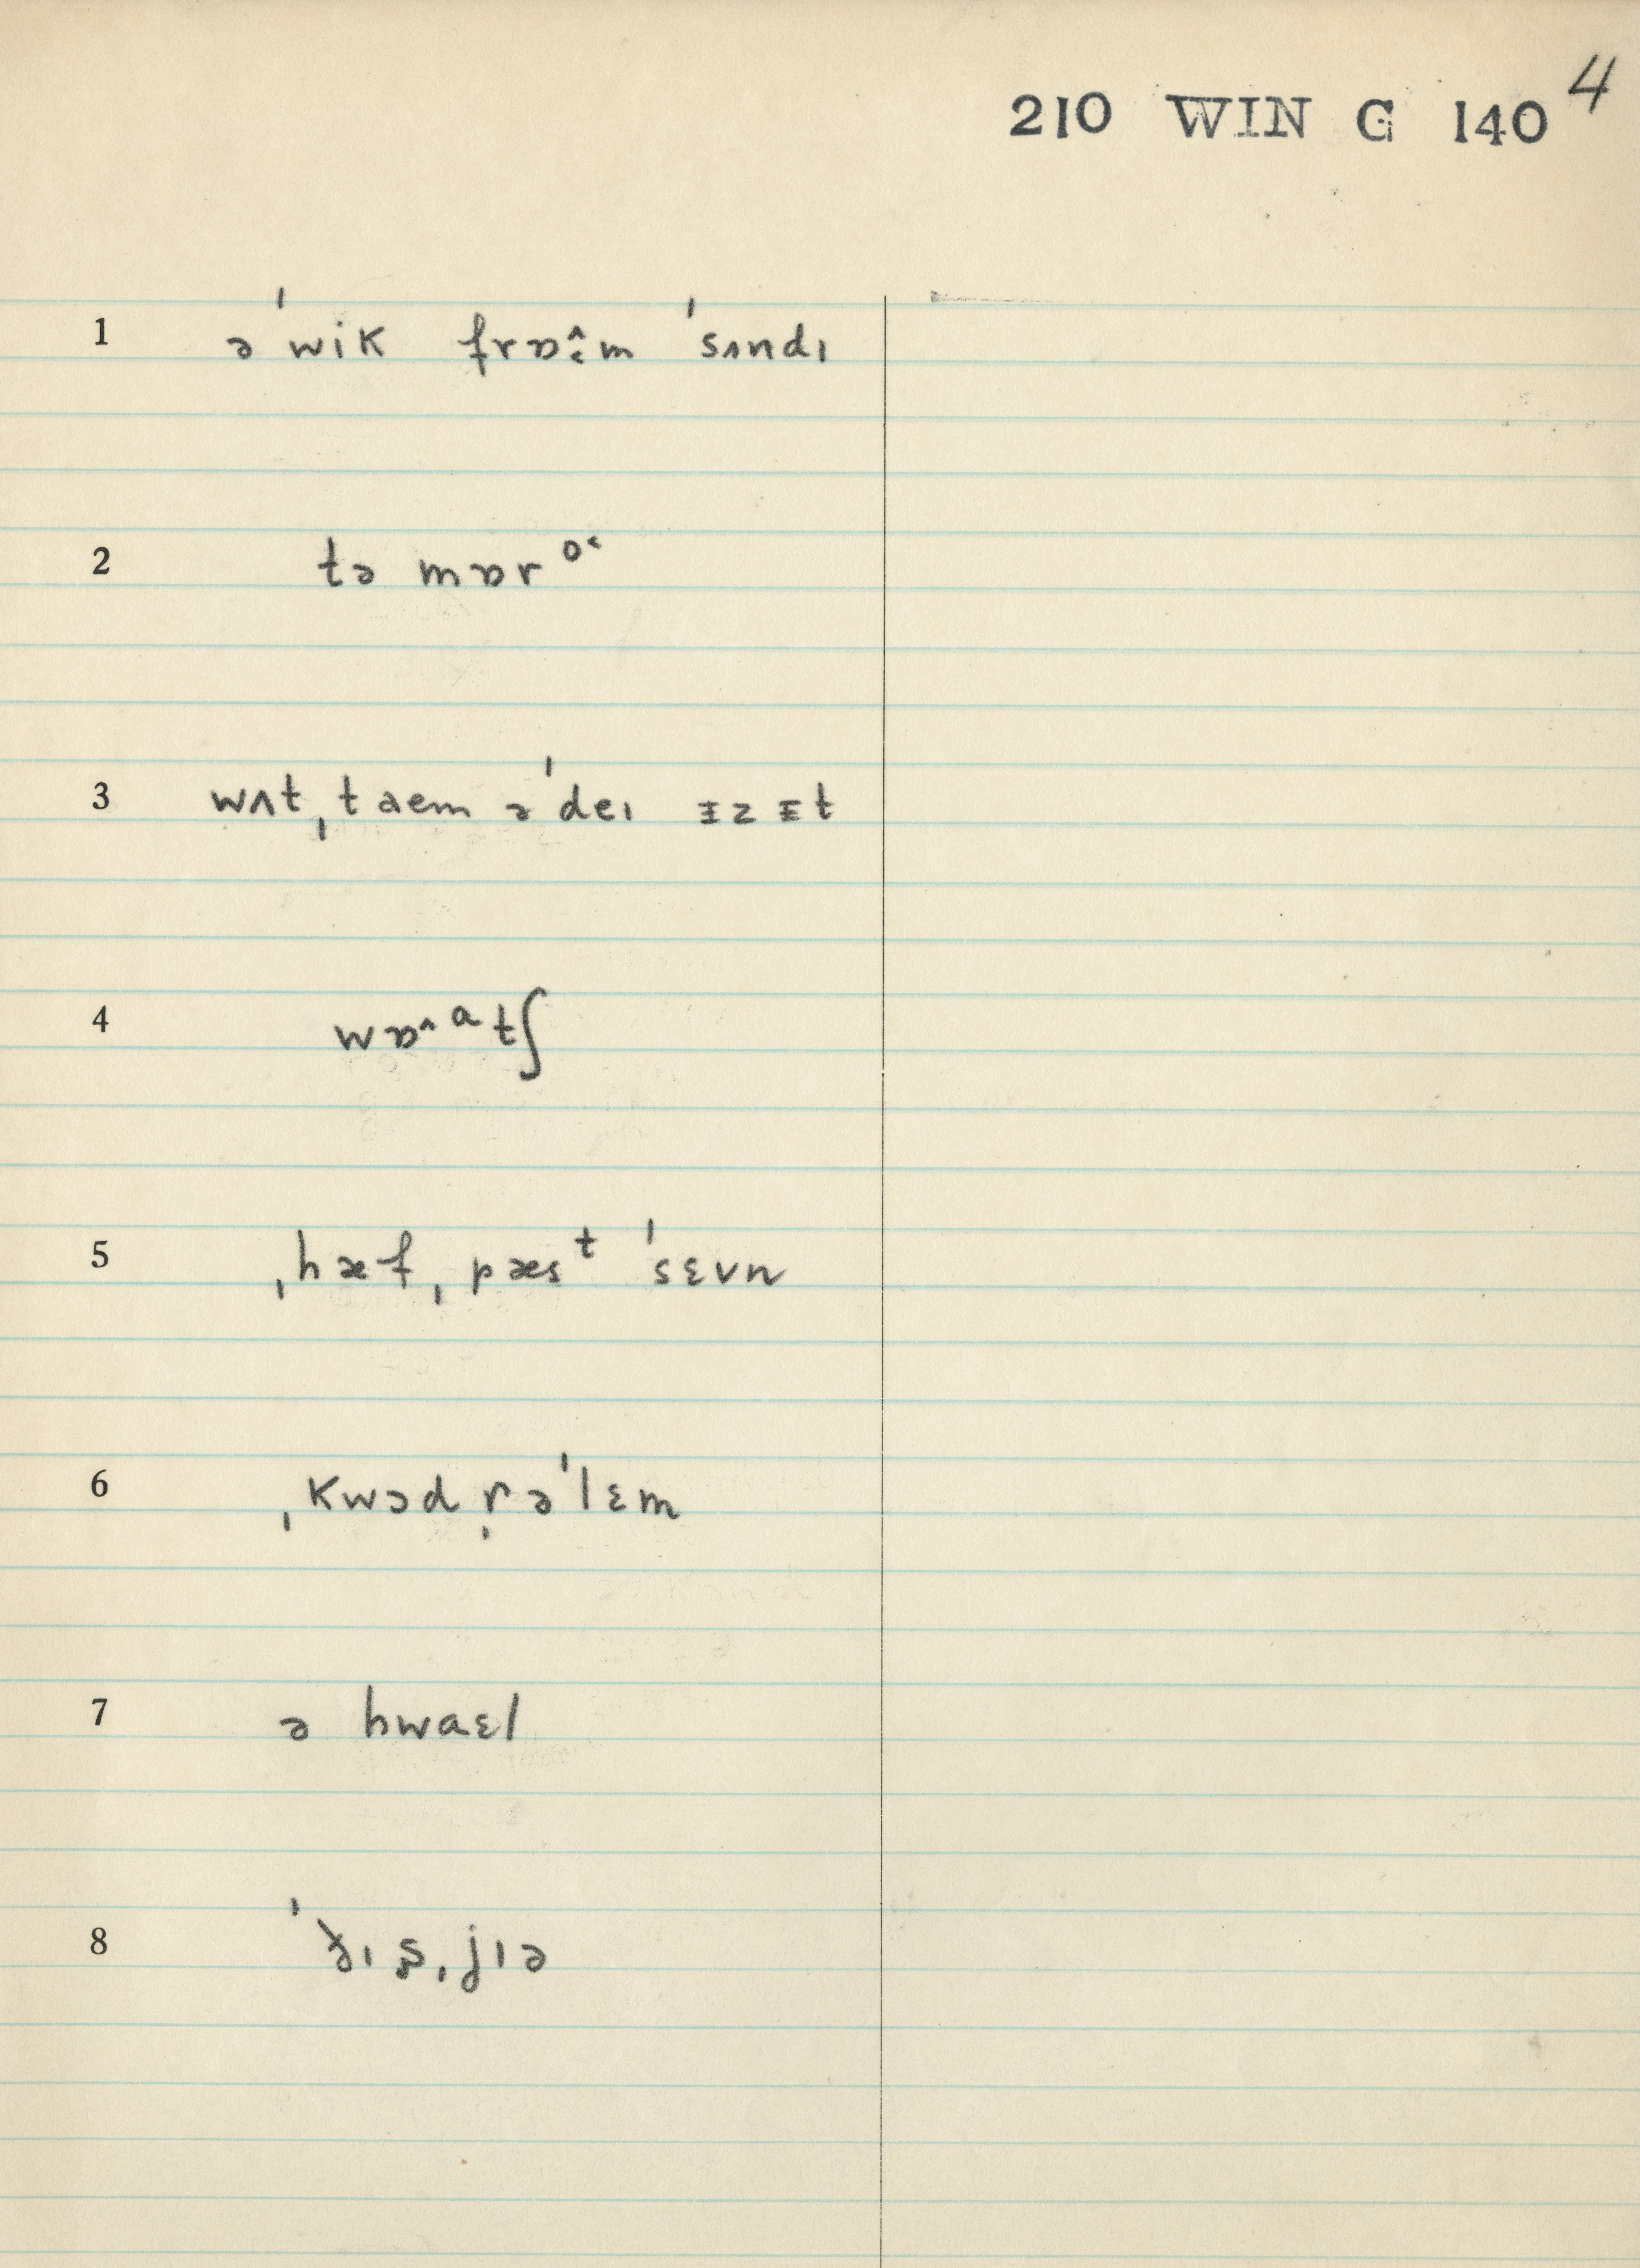 210 WIN G 140 4
1 əˈwik frɒ˄˂m ˈsʌndɪ
2 tə mɒr ᵒ˂
3 wʌtˌtaem əˈdeɪ ᵻzᵻt
4 wɒ˄ᵃtʃ
5 ˌhæfˌpæsᵗ ˈsɛvn
6 ˌkwɔdr̩əˈlɛm
7 ə hwaɛl
8 ˈðɪs̬ˌjɪə